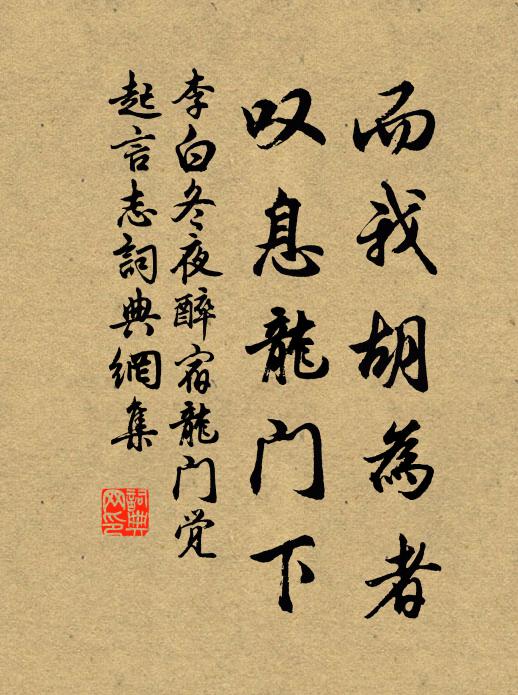 而我胡為者
叹息龍门下
李白冬夜醉宿龍门觉
起言志詞典網集
詞典
网印